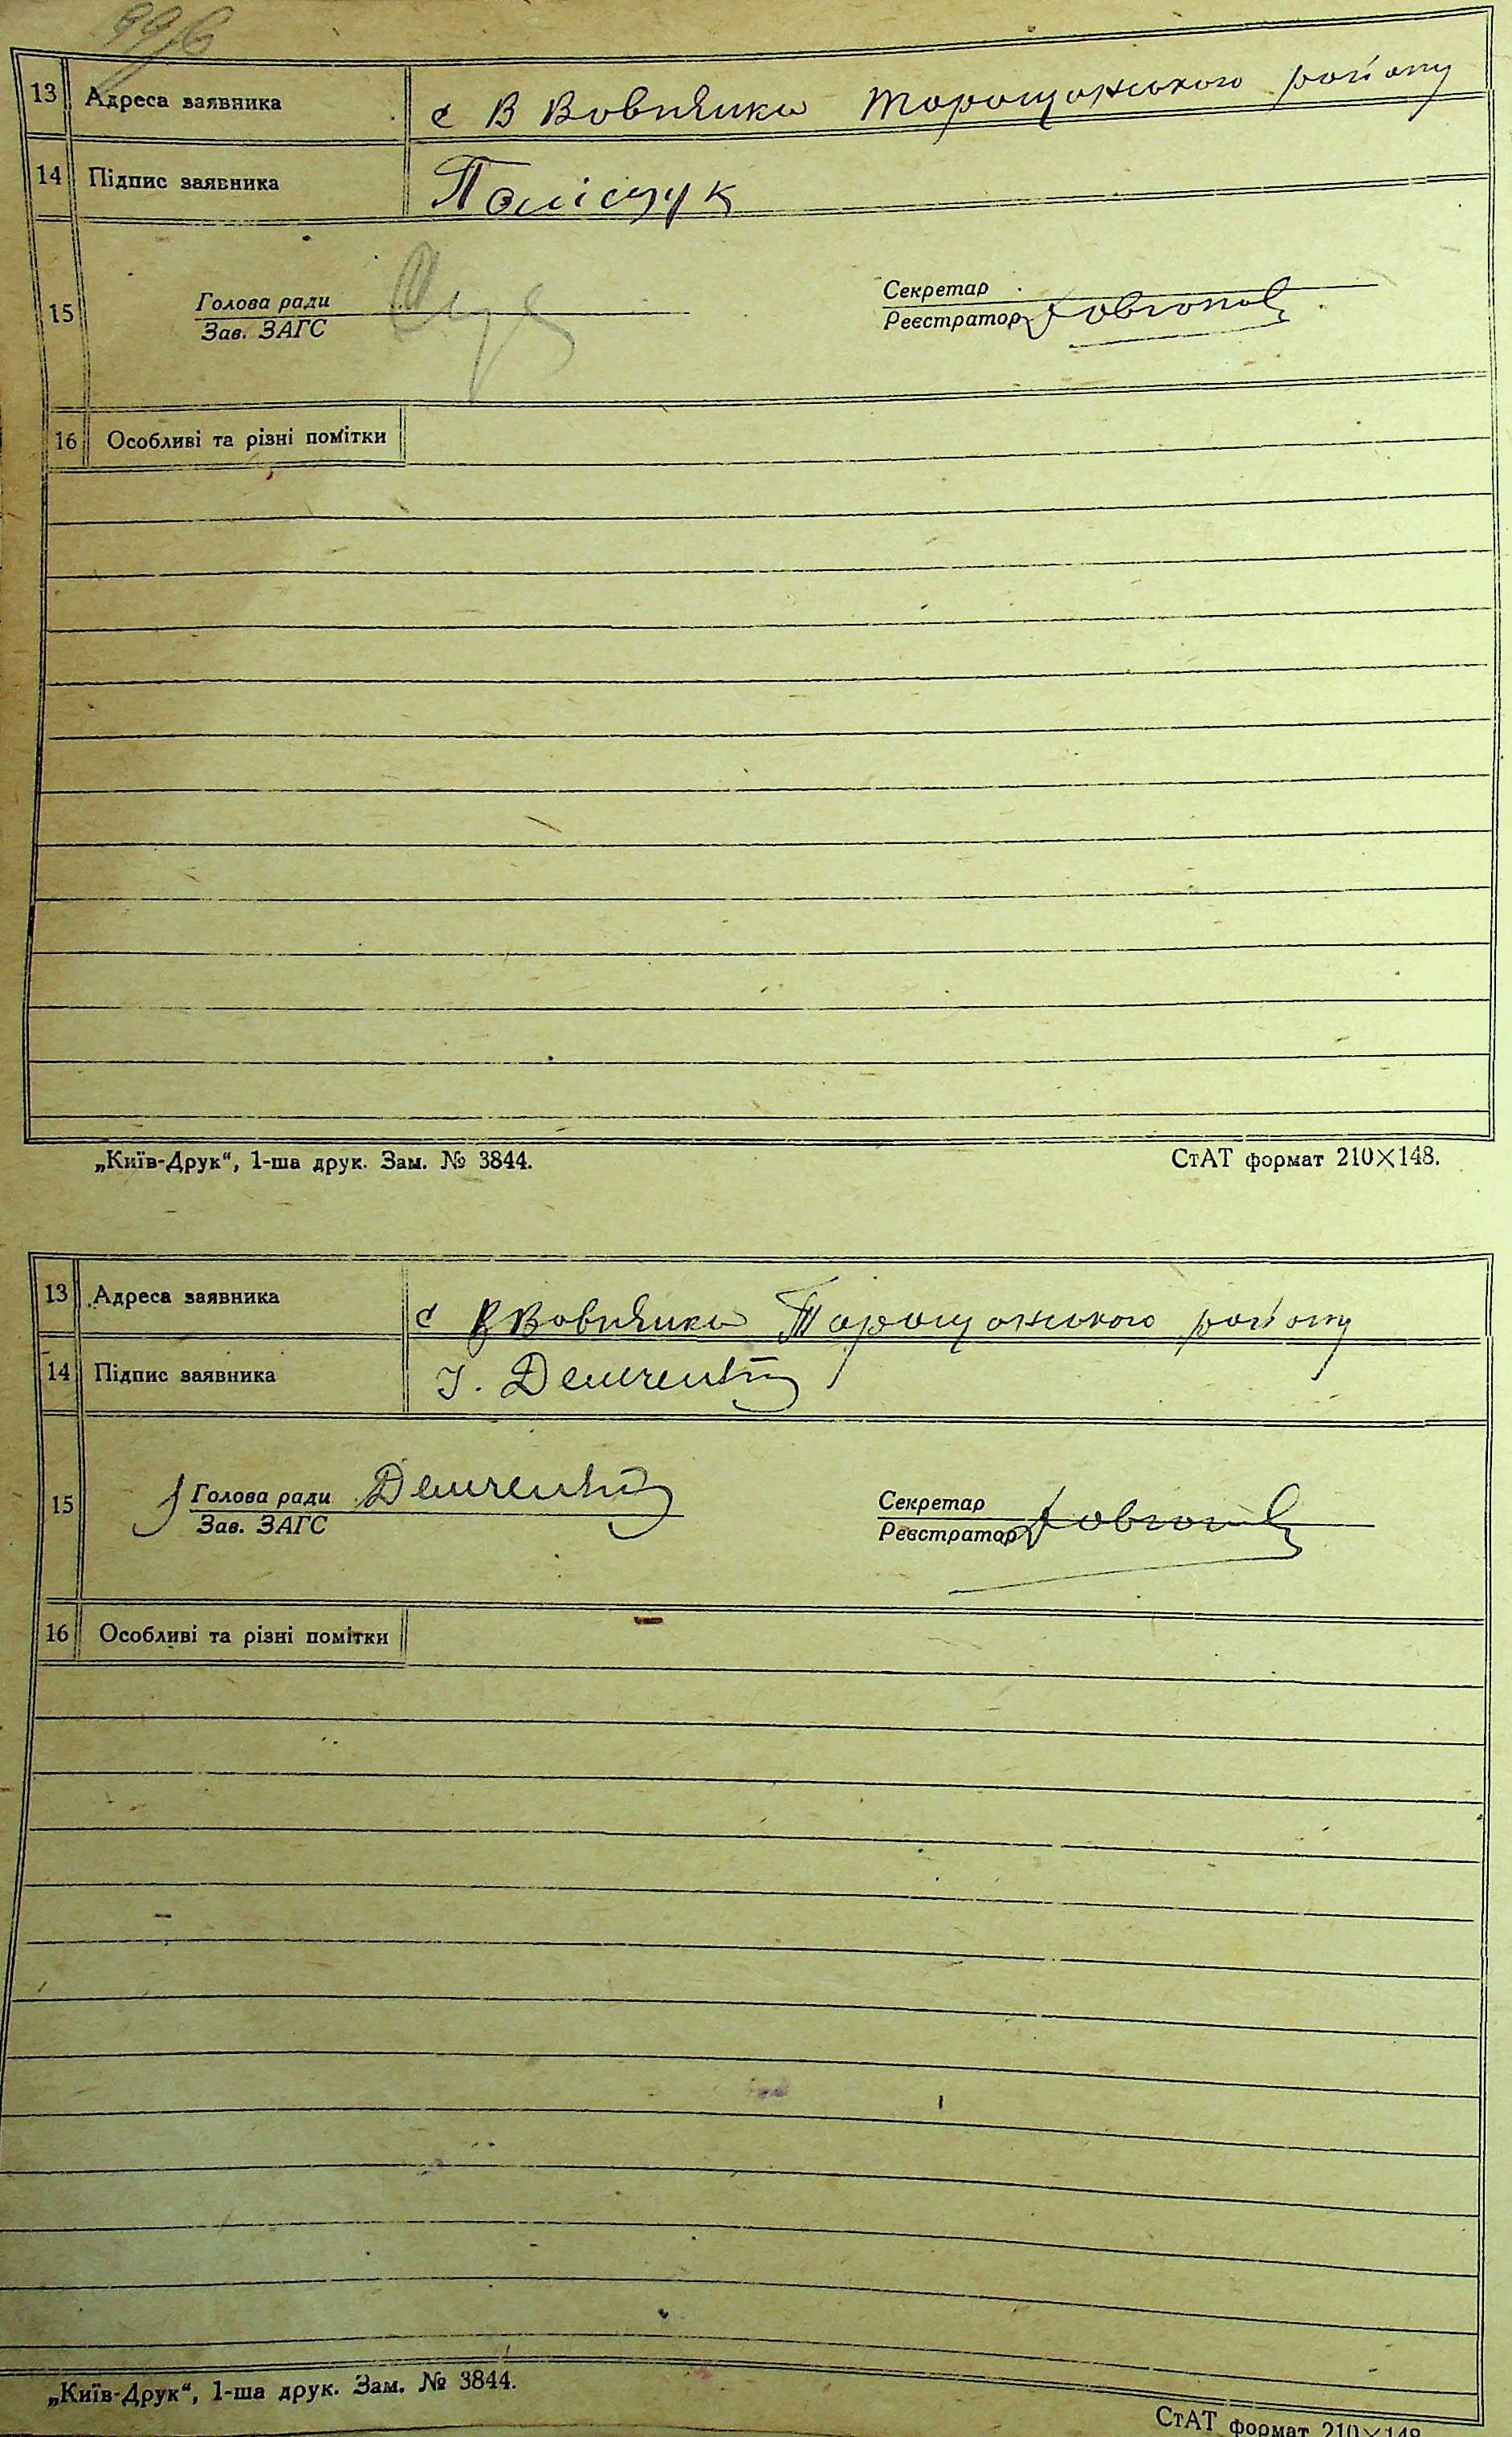 13 Адреса заявника с В Вовнянка Таращанського району
14 Підпис заявника Поліщук
15 Голова ради Секретар
Зав. ЗАГС Реєстратор
16 Особливі та різні помітки
„Київ-Друк“, 1-ша друк. Зам. № 3844. СтАТ формат 210×148.
13 Адреса заявника с В Вовнянка Таращанського району
14 Підпис заявника І. Демченко
15 Голова ради Демченко Секретар
Зав. ЗАГС Реєстратор
16 Особливі та різні помітки
„Київ-Друк“, 1-ша друк. Зам. № 3844.
СтАТ формат 210×148.